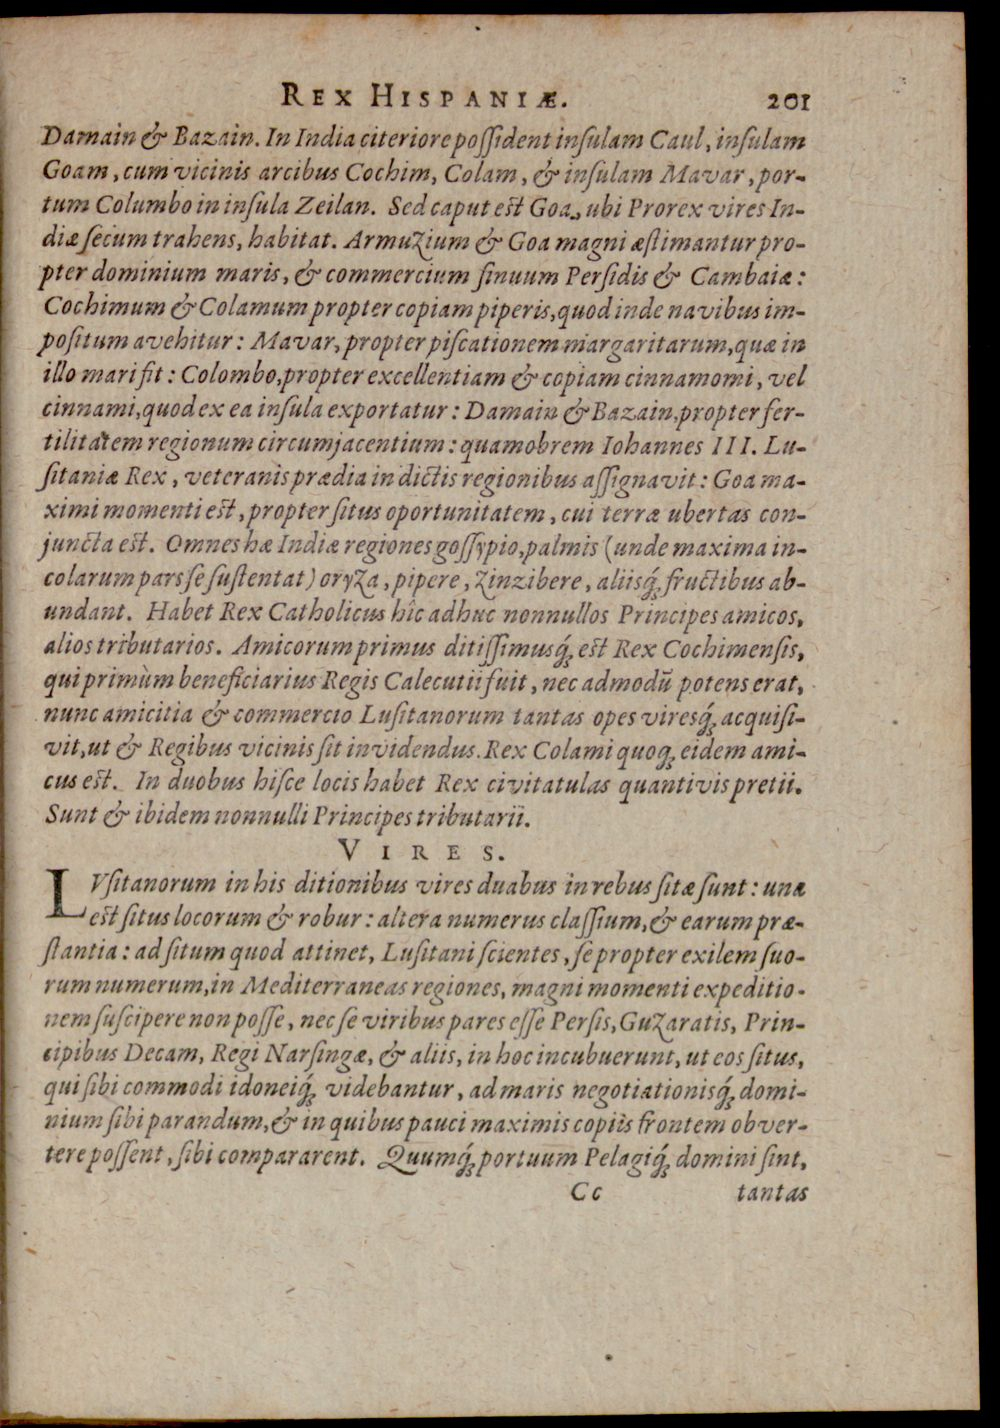 REX HISPANIÆ. 201
Damain & Bazain. In India citeriore possident insulam Caul, insulam
Goam, cum vicinis arcibus Cochim, Colam, & insulam Mavar, por-
tum Columbo in insula Zeilan. Sed caput est Goa, ubi Prorex vires In-
diæ secum trahens, habitat. Armuzium & Goa magni æstimantur pro-
pter dominium maris, & commercium sinuum Persidis & Cambaiæ:
Cochimum & Colamum propter copiam piperis, quod inde navibus im-
positum avehitur: Mavar, propter piscationem margaritarum, quæ in
illo mari fit: Colombo, propter excellentiam & copiam cinnamomi, vel
cinnami, quod ex ea insula exportatur: Damain & Bazain, propter fer-
tilitatem regionum circumjacentium: quamobrem Iohannes III. Lu-
sitaniæ Rex, veteranis prædia in dictis regionibus assignavit: Goa ma-
ximi momenti est, propter situs oportunitatem, cui terræ ubertas con-
juncta est. Omnes hæ Indiæ regiones gossypio, palmis (unde maxima in-
colarum pars se sustentat) oryza, pipere, zinzibere, aliisq́; fructibus ab-
undant. Habet Rex Catholicus hîc adhuc nonnullos Principes amicos,
alios tributarios. Amicorum primus ditissimusq́; est Rex Cochimensis,
qui primùm beneficiarius Regis Calecutii fuit, nec admodū potens erat,
nunc amicitia & commercio Lusitanorum tantas opes viresq́; acquisi-
vit, ut & Regibus vicinis sit invidendus. Rex Colami quoq; eidem ami-
cus est. In duobus hisce locis habet Rex civitatulas quantivis pretii.
Sunt & ibidem nonnulli Principes tributarii.
VIRES.
LVsitanorum in his ditionibus vires duabus in rebus sitæ sunt: una
est situs locorum & robur: altera numerus classium, & earum præ-
stantia: ad situm quod attinet, Lusitani scientes, se propter exilem suo-
rum numerum, in Mediterraneas regiones, magni momenti expeditio-
nem suscipere non posse, nec se viribus pares esse Persis, Guzaratis, Prin-
cipibus Decam, Regi Narsingæ, & aliis, in hoc incubuerunt, ut eos situs,
qui sibi commodi idoneiq́; videbantur, ad maris negotiationisq́; domi-
nium sibi parandum, & in quibus pauci maximis copiis frontem obver-
tere possent, sibi compararent. Quumq́; portuum Pelagiq́; domini sint,
Cc tantas